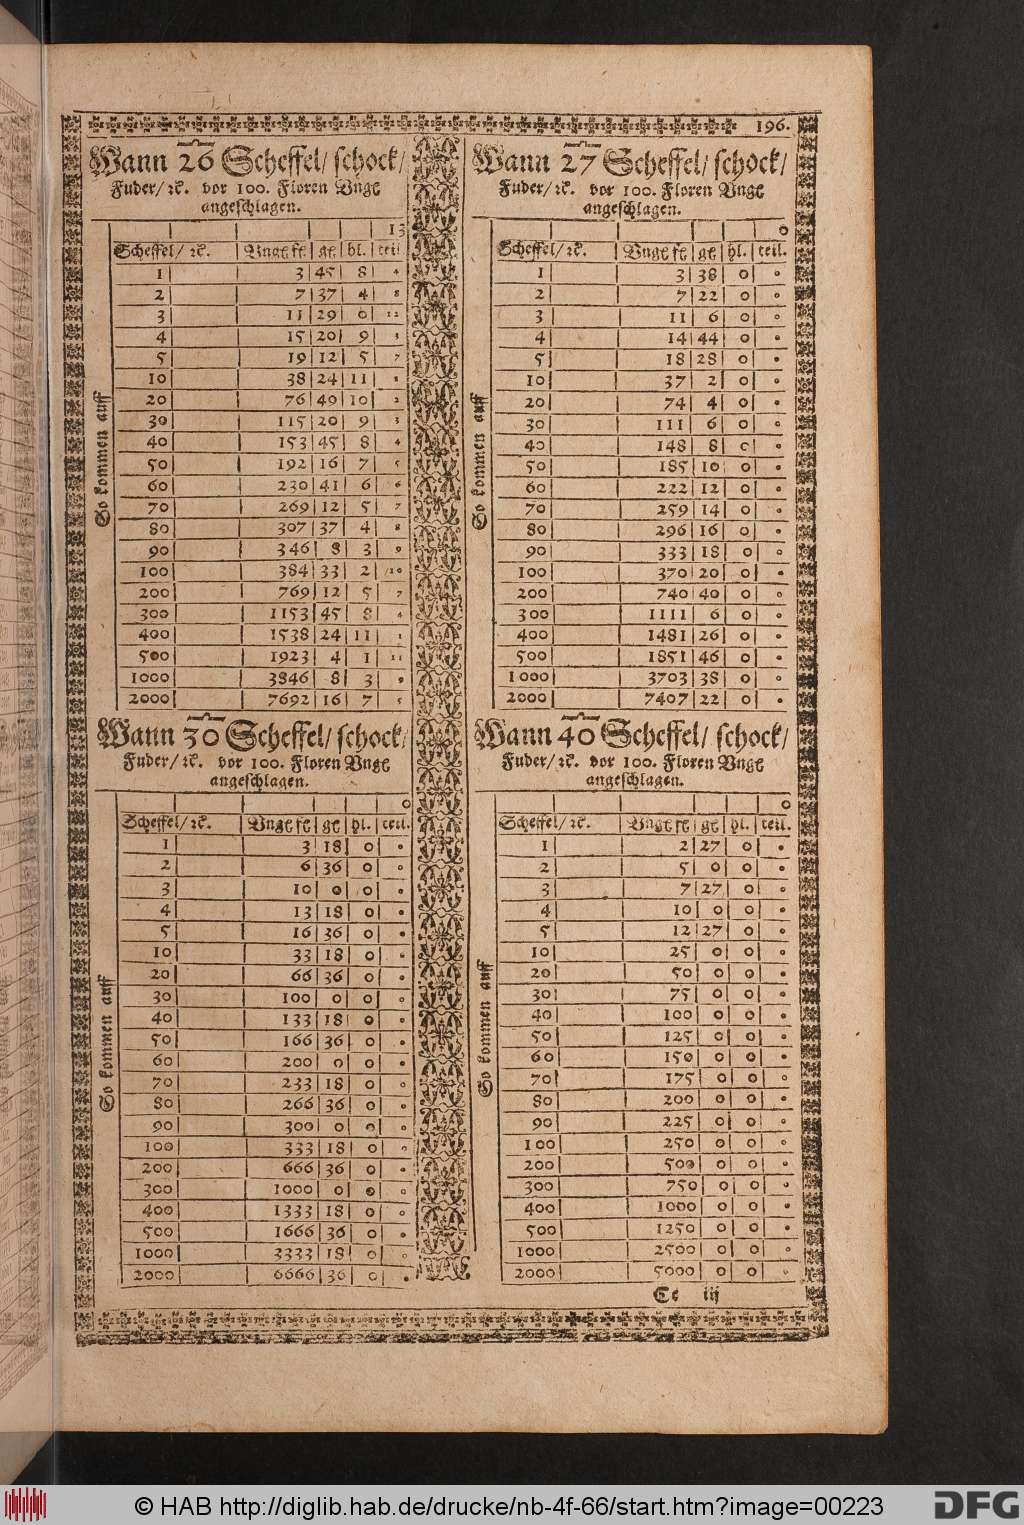 196.
Wann 26 Scheffel/ schock/
Fuder/ ꝛc. vor 100. Floren Vngꝭ
angeschlagen.
13
Scheffel/ ꝛc. | Vngꝭ fꝭ | gꝭ | hl. | teil
So kommen auff
1 | 3 | 45 | 8 | 4
2 | 7 | 37 | 4 | 8
3 | 11 | 29 | 0 | 12
4 | 15 | 20 | 9 | 3
5 | 19 | 12 | 5 | 7
10 | 38 | 24 | 11 | 1
20 | 76 | 49 | 10 | 2
30 | 115 | 20 | 9 | 3
40 | 153 | 45 | 8 | 4
50 | 192 | 16 | 7 | 5
60 | 230 | 41 | 6 | 6
70 | 269 | 12 | 5 | 7
80 | 307 | 37 | 4 | 8
90 | 346 | 8 | 3 | 9
100 | 384 | 33 | 2 | 10
200 | 769 | 12 | 5 | 7
300 | 1153 | 45 | 8 | 4
400 | 1538 | 24 | 11 | 1
500 | 1923 | 4 | 1 | 11
1000 | 3846 | 8 | 3 | 9
2000 | 7692 | 16 | 7 | 5
Wann 27 Scheffel/ schock/
Fuder/ ꝛc. vor 100. Floren Vngꝭ
angeschlagen.
0
Scheffel/ ꝛc. | Vngꝭ fꝭ | gꝭ | hl. | teil.
So kommen auff
1 | 3 | 38 | 0 | 0
2 | 7 | 22 | 0 | 0
3 | 11 | 6 | 0 | 0
4 | 14 | 44 | 0 | 0
5 | 18 | 28 | 0 | 0
10 | 37 | 2 | 0 | 0
20 | 74 | 4 | 0 | 0
30 | 111 | 6 | 0 | 0
40 | 148 | 8 | 0 | 0
50 | 185 | 10 | 0 | 0
60 | 222 | 12 | 0 | 0
70 | 259 | 14 | 0 | 0
80 | 296 | 16 | 0 | 0
90 | 333 | 18 | 0 | 0
100 | 370 | 20 | 0 | 0
200 | 740 | 40 | 0 | 0
300 | 1111 | 6 | 0 | 0
400 | 1481 | 26 | 0 | 0
500 | 1851 | 46 | 0 | 0
1000 | 3703 | 38 | 0 | 0
2000 | 7407 | 22 | 0 | 0
Wann 30 Scheffel/ schock/
Fuder/ ꝛc. vor 100. Floren Vngꝭ
angeschlagen.
0
Scheffel/ ꝛc. | Vngꝭ fꝭ | gꝭ | hl. | teil.
So kommen auff
1 | 3 | 18 | 0 | 0
2 | 6 | 36 | 0 | 0
3 | 10 | 0 | 0 | 0
4 | 13 | 18 | 0 | 0
5 | 16 | 36 | 0 | 0
10 | 33 | 18 | 0 | 0
20 | 66 | 36 | 0 | 0
30 | 100 | 0 | 0 | 0
40 | 133 | 18 | 0 | 0
50 | 166 | 36 | 0 | 0
60 | 200 | 0 | 0 | 0
70 | 233 | 18 | 0 | 0
80 | 266 | 36 | 0 | 0
90 | 300 | 0 | 0 | 0
100 | 333 | 18 | 0 | 0
200 | 666 | 36 | 0 | 0
300 | 1000 | 0 | 0 | 0
400 | 1333 | 18 | 0 | 0
500 | 1666 | 36 | 0 | 0
1000 | 3333 | 18 | 0 | 0
2000 | 6666 | 36 | 0 | 0
Wann 40 Scheffel/ schock/
Fuder/ ꝛc. vor 100. Floren Vngꝭ
angeschlagen.
0
Scheffel/ ꝛc. | Vngꝭ fꝭ | gꝭ | hl. | teil.
So kommen auff
1 | 2 | 27 | 0 | 0
2 | 5 | 0 | 0 | 0
3 | 7 | 27 | 0 | 0
4 | 10 | 0 | 0 | 0
5 | 12 | 27 | 0 | 0
10 | 25 | 0 | 0 | 0
20 | 50 | 0 | 0 | 0
30 | 75 | 0 | 0 | 0
40 | 100 | 0 | 0 | 0
50 | 125 | 0 | 0 | 0
60 | 150 | 0 | 0 | 0
70 | 175 | 0 | 0 | 0
80 | 200 | 0 | 0 | 0
90 | 225 | 0 | 0 | 0
100 | 250 | 0 | 0 | 0
200 | 500 | 0 | 0 | 0
300 | 750 | 0 | 0 | 0
400 | 1000 | 0 | 0 | 0
500 | 1250 | 0 | 0 | 0
1000 | 2500 | 0 | 0 | 0
2000 | 5000 | 0 | 0 | 0
Cc iij
© HAB http://diglib.hab.de/drucke/nb-4f-66/start.htm?image=00223
DFG